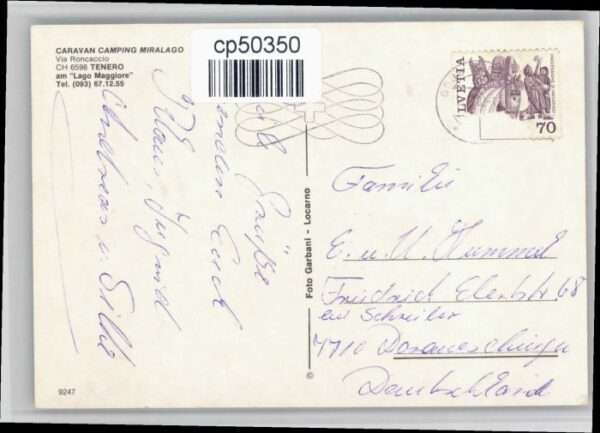 CARAVAN CAMPING MIRALAGO
Via Roncaccio
CH 6598 TENERO
am "Lago Maggiore"
Tel. (093) 67.12.55
cp50350
HELVETIA
70
Grüße
senden Euch
Klaus, Ingrid
Andreas u. Silke
Foto Garbani - Locarno
Familie
E. u. U. Hummel
Friedrich Ebertstr 68
bei Schreiber
7710 Donaueschingen
Deutschland
9247
©